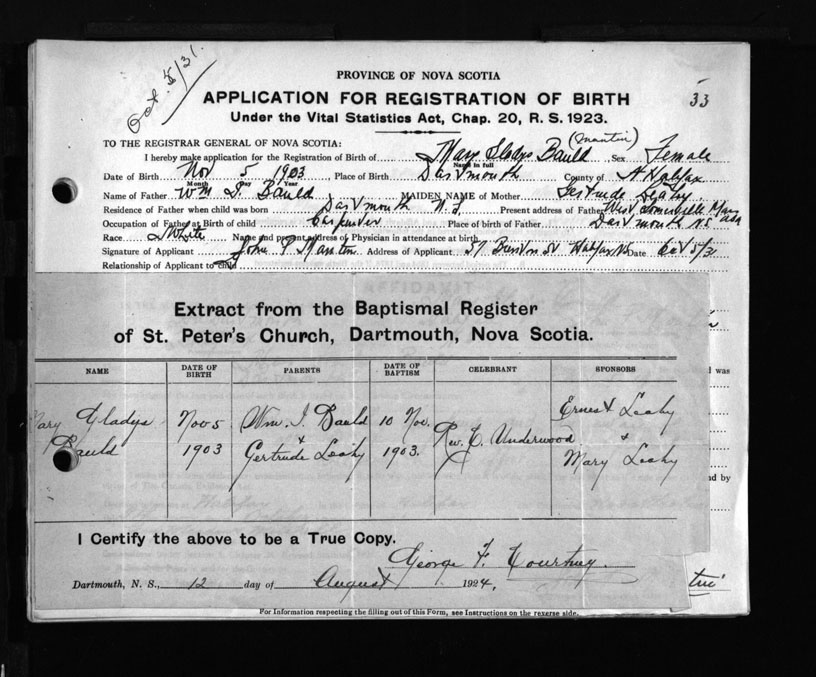 Oct. 5/31.
33
PROVINCE OF NOVA SCOTIA
APPLICATION FOR REGISTRATION OF BIRTH
Under the Vital Statistics Act, Chap. 20, R. S. 1923.
TO THE REGISTRAR GENERAL OF NOVA SCOTIA:
I hereby make application for the Registration of Birth of Mary Gladys Bauld Sex Female
Name in full
Date of Birth Nov 5 1903 Place of Birth Dartmouth County of Halifax
Month Day Year
Name of Father Wm I. Bauld MAIDEN NAME of Mother Gertrude Leahy
Residence of Father when child was born Dartmouth N.S. Present address of Father West Somerville Mass
Occupation of Father at Birth of child Carpenter Place of birth of Father Dartmouth N.S.
Race White Name and present address of Physician in attendance at birth
Signature of Applicant John Address of Applicant 57 St Halifax NS Date Oct 5/31
Relationship of Applicant to child
Extract from the Baptismal Register
of St. Peter's Church, Dartmouth, Nova Scotia.
NAME DATE OF BIRTH PARENTS DATE OF BAPTISM CELEBRANT SPONSORS
Mary Gladys Nov 5 Wm. I. Bauld 10 Nov. Rev. C. Underwood Ernest Leahy
Bauld 1903 + Gertrude Leahy 1903. + Mary Leahy
I Certify the above to be a True Copy.
George F. Courtney.
Dartmouth, N. S., 12 day of August 1924,
For Information respecting the filling out of this Form, see Instructions on the reverse side.